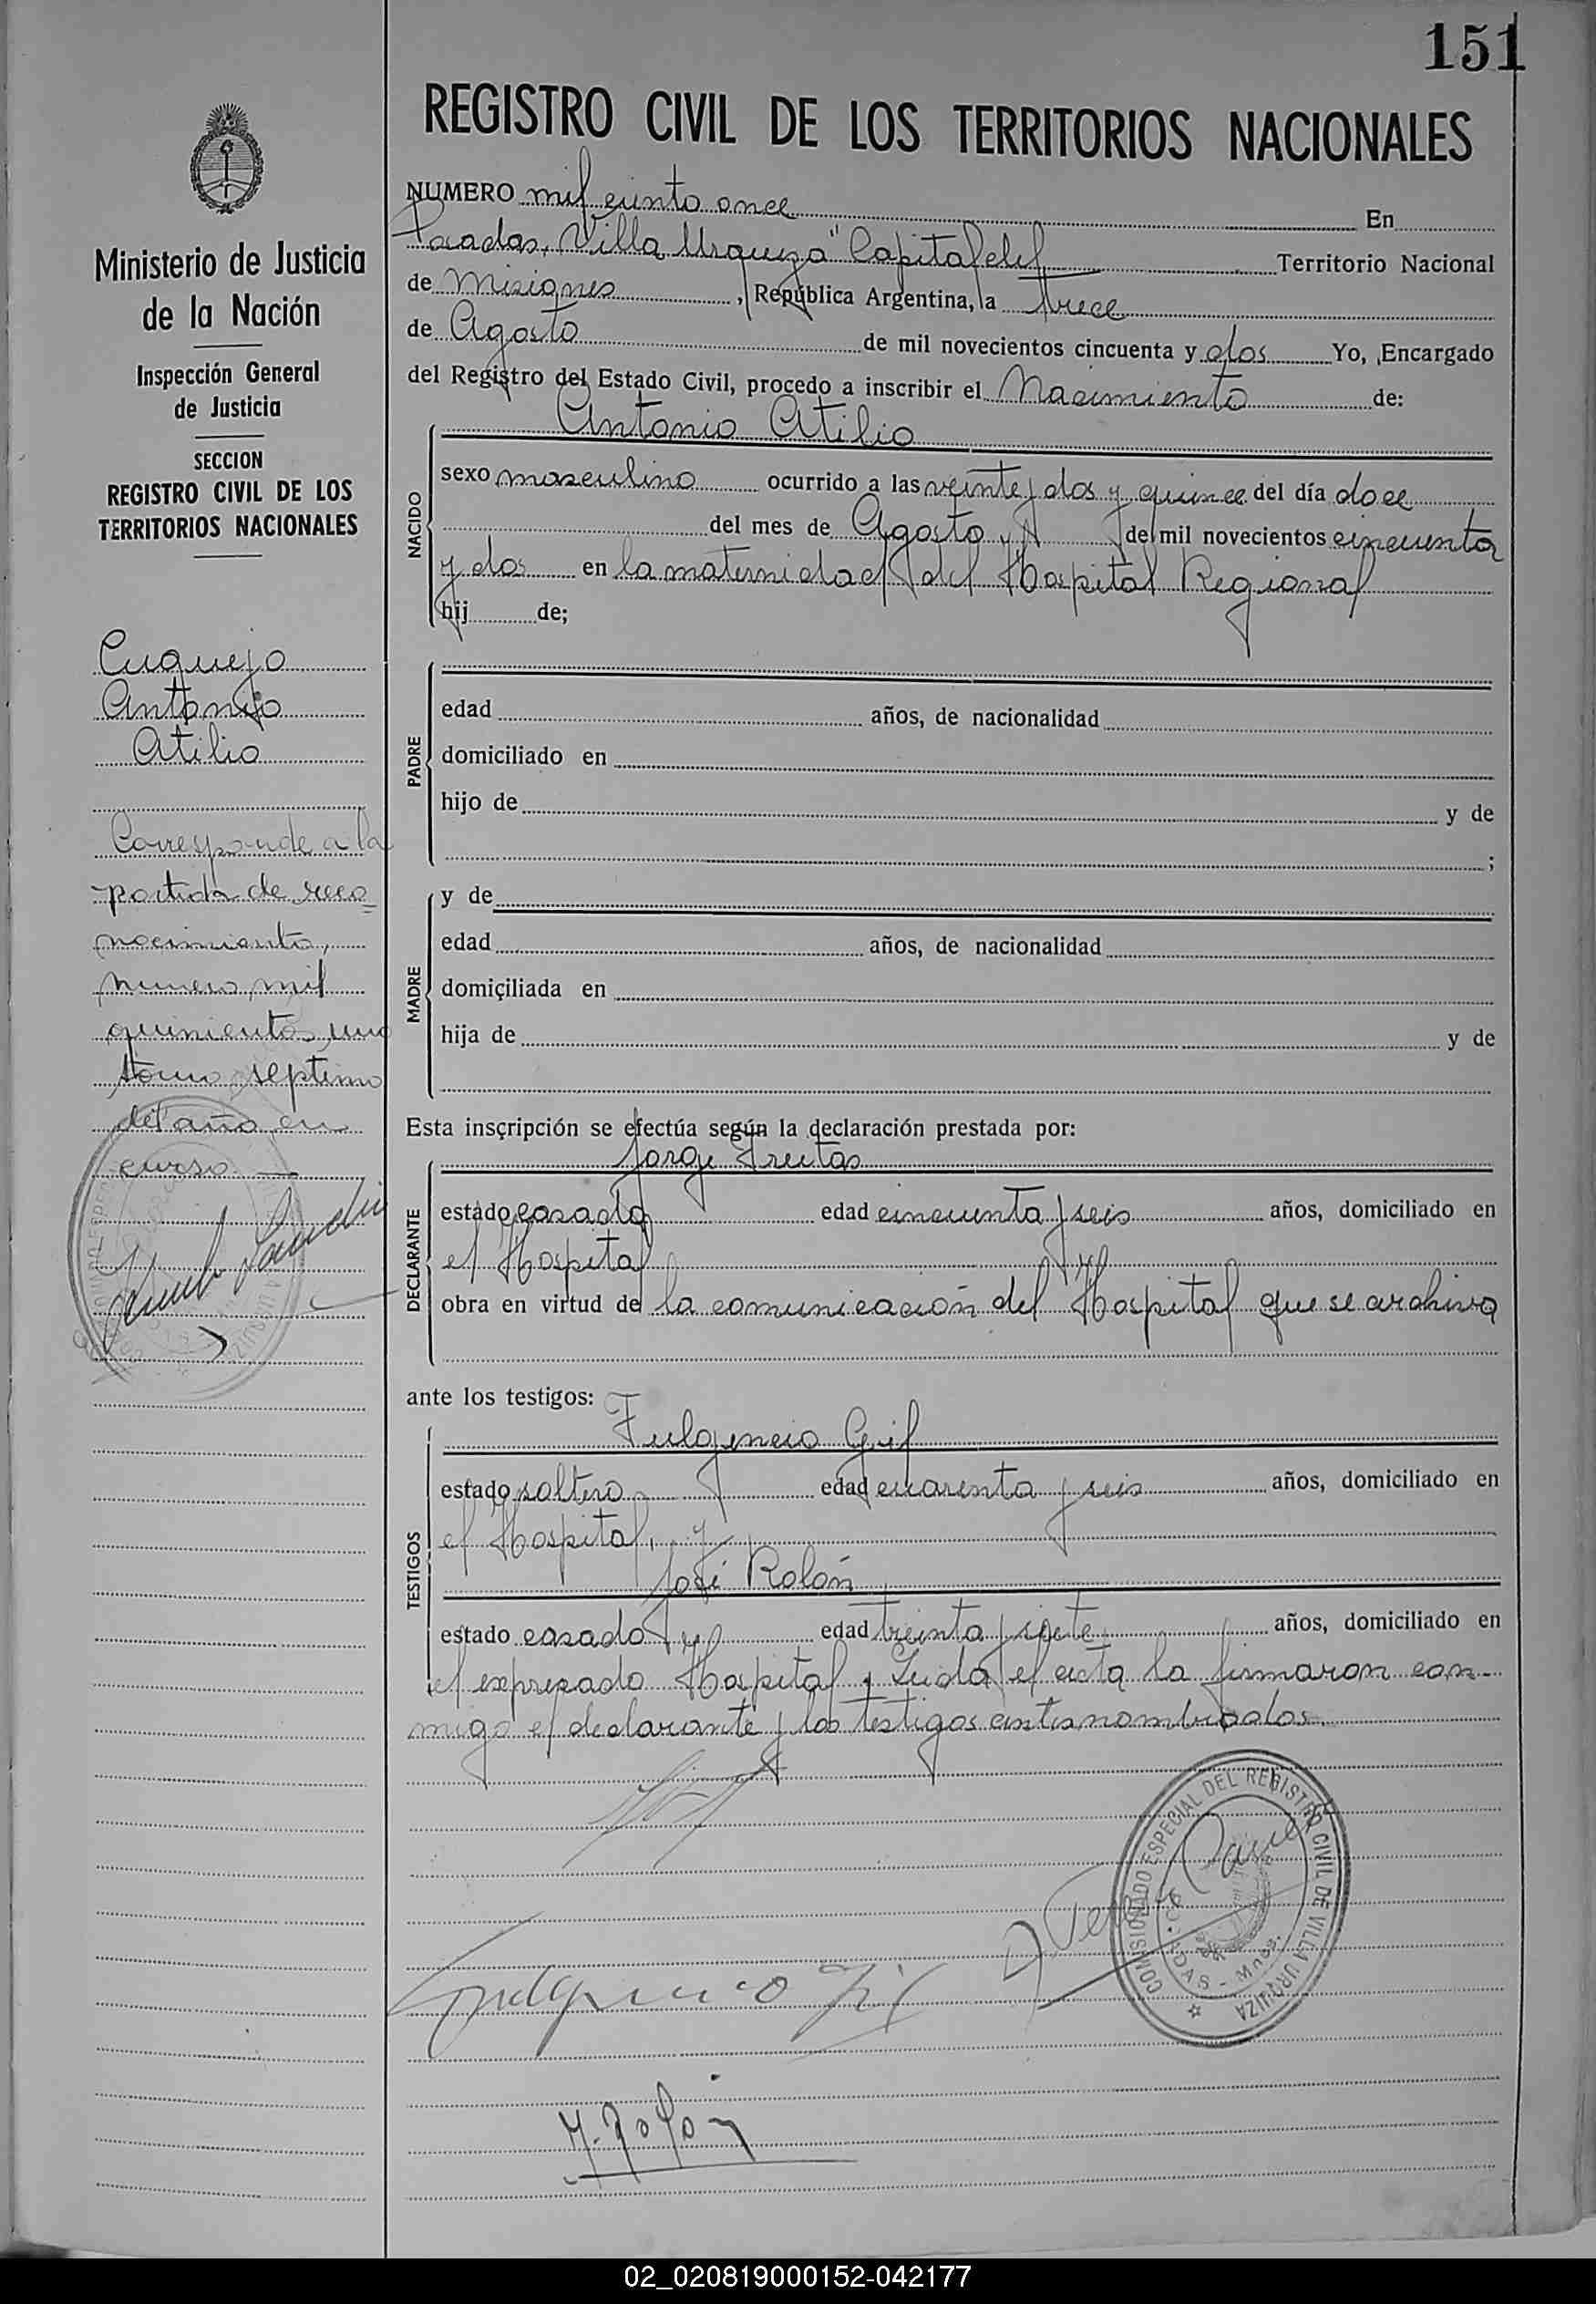 151
REGISTRO CIVIL DE LOS TERRITORIOS NACIONALES
Ministerio de Justicia
de la Nación
Inspección General
de Justicia
SECCION
REGISTRO CIVIL DE LOS
TERRITORIOS NACIONALES
Cuquejo
Antonio
Atilio
Corresponde a la
partida de reco=
nocimiento,
numero mil
quinientos uno
tomo septimo
del año en
curso
NUMERO mil ciento once En
Posadas, "Villa Urquiza" Capital del Territorio Nacional
de Misiones, República Argentina, a trece
de Agosto de mil novecientos cincuenta y dos Yo, Encargado
del Registro del Estado Civil, procedo a inscribir el Nacimiento de:
Antonio Atilio
NACIDO
sexo masculino ocurrido a las veinte y dos y quince del día doce
del mes de Agosto de mil novecientos cincuenta
y dos en la maternidad del Hospital Regional
hij de;
PADRE
edad años, de nacionalidad
domiciliado en
hijo de y de
;
MADRE
y de
edad años, de nacionalidad
domiciliada en
hija de y de
Esta inscripción se efectúa según la declaración prestada por:
Jorge Freitas
DECLARANTE
estado casado edad cincuenta y seis años, domiciliado en
el Hospital
obra en virtud de la comunicación del Hospital que se archiva
ante los testigos:
Fulgencio Gil
TESTIGOS
estado soltero edad cuarenta y seis años, domiciliado en
el Hospital, y
José Rolón
estado casado edad treinta y siete años, domiciliado en
el expresado Hospital, Leida el acta la firmaron con-
migo el declarante y los testigos antes nombrados.
COMISIONADO ESPECIAL DEL REGISTRO CIVIL DE VILLA URQUIZA
Fulgencio Gil
J. Rolón
02_020819000152-042177